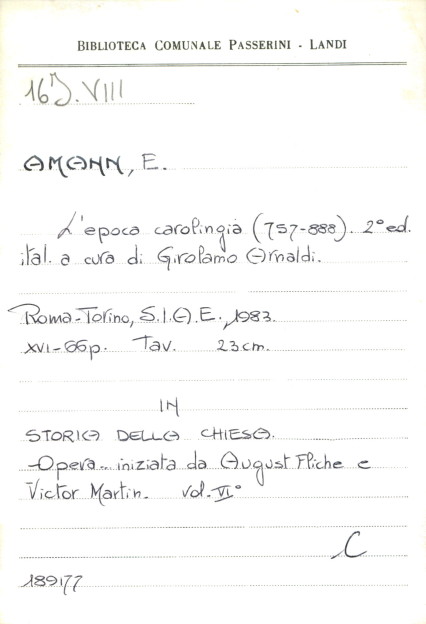 BIBLIOTECA COMUNALE PASSERINI - LANDI
16 J. VIII
AMANN, E.
L'epoca carolingia (757-888). 2º ed.
ital. a cura di Girolamo Arnaldi.
Roma-Torino, S.I.A.E., 1983.
XVI-66p. Tav. 23cm.
IN
STORIA DELLA CHIESA.
Opera iniziata da August Fliche e
Victor Martin. vol. VIº
C
189177